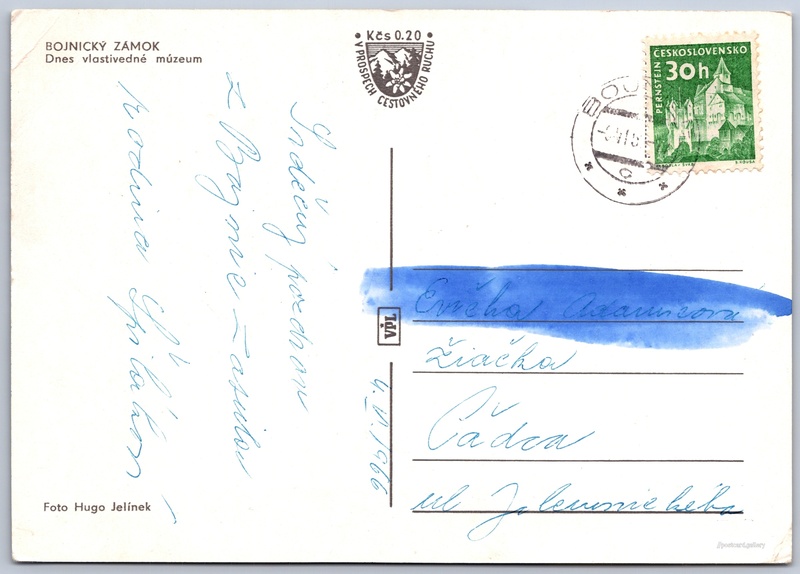 BOJNICKÝ ZÁMOK
Dnes vlastivedné múzeum
• Kčs 0.20 •
V PROSPECH CESTOVNÉHO RUCHU
ČESKOSLOVENSKO
30h
PERNŠTEJN
Srdečný pozdrav
z Bojnic
rodina
4. VI. 1966
VPL
Evička Adamicova
Žiačka
Čadca
ul
Foto Hugo Jelínek